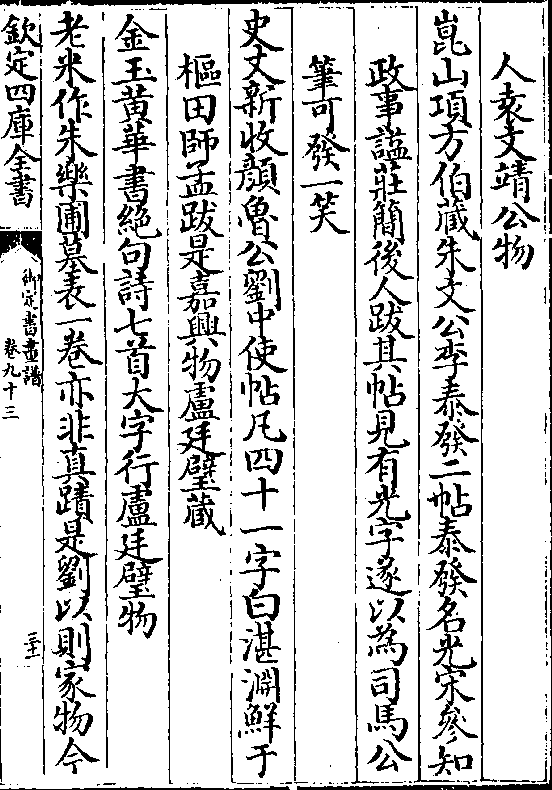 人袁文靖公物
崑山項方伯藏朱文公李泰發二帖泰發名光宋參知
政事諡莊簡後人跋其帖見有光字遂以為司馬公
筆可發一笑
史丈新收顔魯公劉中使帖凡四十一字白湛淵鮮于
樞田師孟跋是嘉興物盧廷璧藏
金玉黄華書絶句詩七首大字行盧廷璧物
老米作朱樂圃墓表一卷亦非真蹟是劉以則家物今
欽定四庫全書
御定書畫譜
卷九十三
三十二